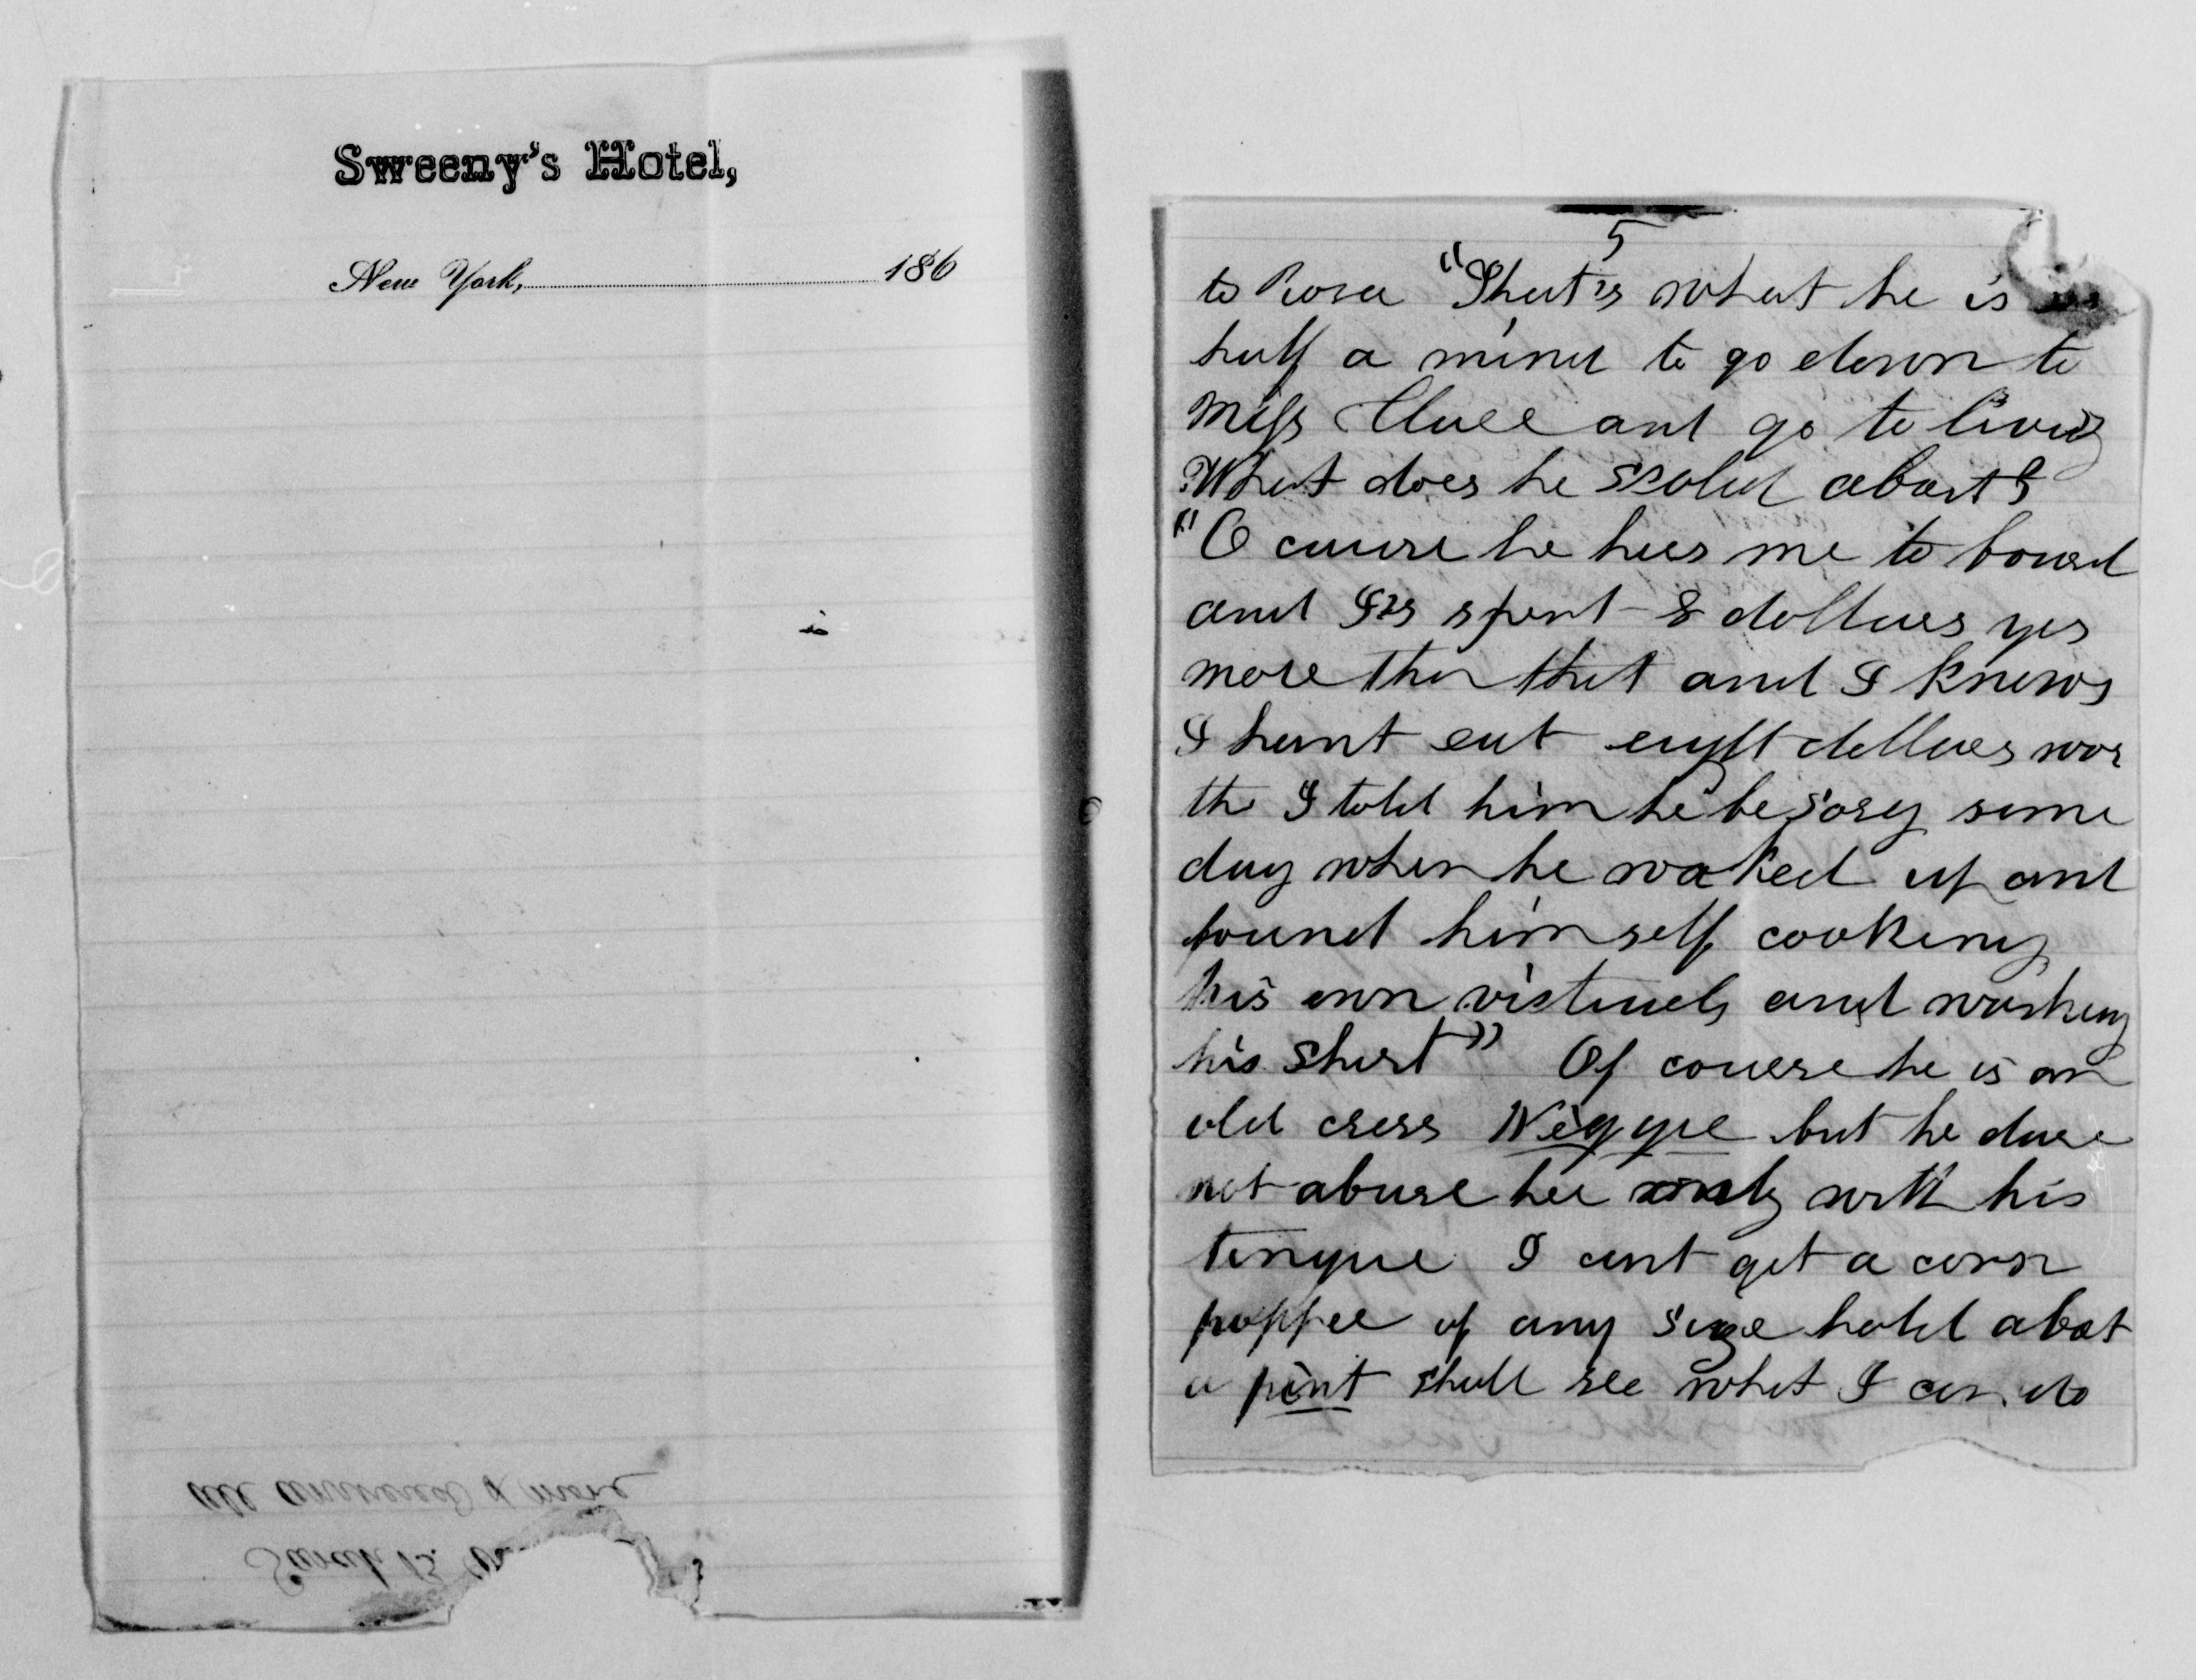 Sweeny's Hotel,
New York, 186
all answered & more
Sarah B.
5
to Rosa "That's what he is
half a mind to go down to
Miss Clare and go to living
What does he scold about?
"O cause he has me to board
and I's spent 8 dollars yes
more than that and I knows
I hant eat eight dollars wor
th I told him he be sorey some
day when he waked up and
found himself cooking
his own victuals and washing
his shirt" Of course he is an
old cross Nigger but he dare
not abuse her only with his
tongue I cant get a corn
popper of any size hold about
a pint shall see what I can do